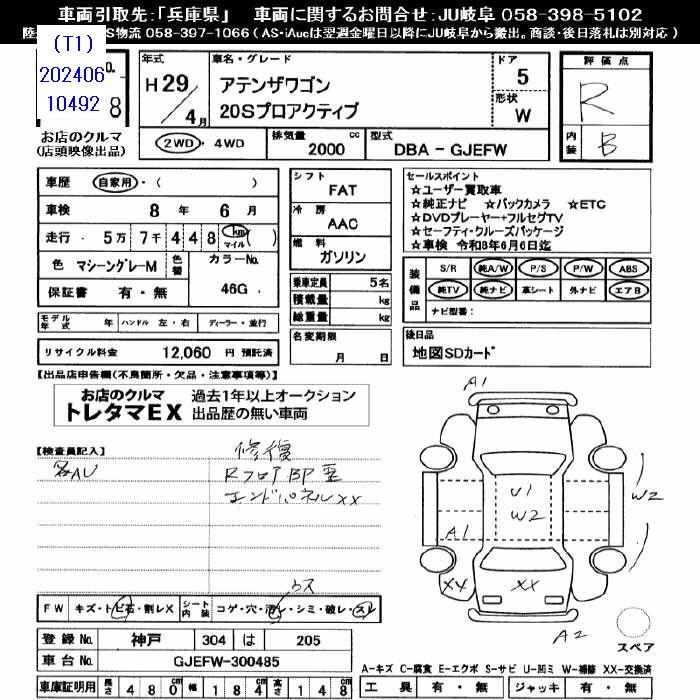 車両引取先：「兵庫県」 車両に関するお問合せ：JU岐阜 058-398-5102
S物流 058-397-1066（AS・iAucは翌週金曜日以降にJU岐阜から搬出。商談・後日落札は別対応）
(T1)
202406
10492
No.
8
お店のクルマ
(店頭映像出品)
年式
H29/4月
車名・グレード
アテンザワゴン
20Sプロアクティブ
ドア
5
形状
W
評価点
R
内装
B
2WD・4WD
排気量 2000 cc
型式 DBA－GJEFW
車歴 自家用・( )
車検 8年 6月
走行 5万7千448 km マイル ( )
色 マシーングレーM
色替
カラーNo. 46G
保証書 有・無
シフト FAT
冷房 AAC
燃料 ガソリン
乗車定員 5名
積載量 kg
総重量 kg
名変期限 月 日
セールスポイント
☆ユーザー買取車
☆純正ナビ ☆バックカメラ ☆ETC
☆DVDプレーヤー+フルセグTV
☆セーフティ・クルーズパッケージ
☆車検 令和8年6月6日迄
装備品
S/R 純A/W P/S P/W ABS
純TV 純ナビ 革シート 外ナビ エアB
ナビ型番：
モデル年式 年 ハンドル 左・右 ディーラー・並行
リサイクル料金 12,060 円 預託済
後日品
地図SDカード
【出品店申告欄(不良箇所・欠品・注意事項等)】
お店のクルマ
トレタマEX
過去1年以上オークション
出品歴の無い車両
【検査員記入】
各AU
修復
Rフロア BP歪
エンドパネルXX
A1
U1
W2
W2
A1
XX
XX
A2
スペア
ウス
FW キズ・トビ石・割レX
シート内装 コゲ・穴・汚レ・シミ・破レ・スレ
登録No. 神戸 304 は 205
車台No. GJEFW-300485
車庫証明用 長さ 480cm 幅 184cm 高さ 148cm
A-キズ C-腐食 E-エクボ S-サビ U-凹ミ W-補修 XX-交換済
工具 有・無 ジャッキ 有・無